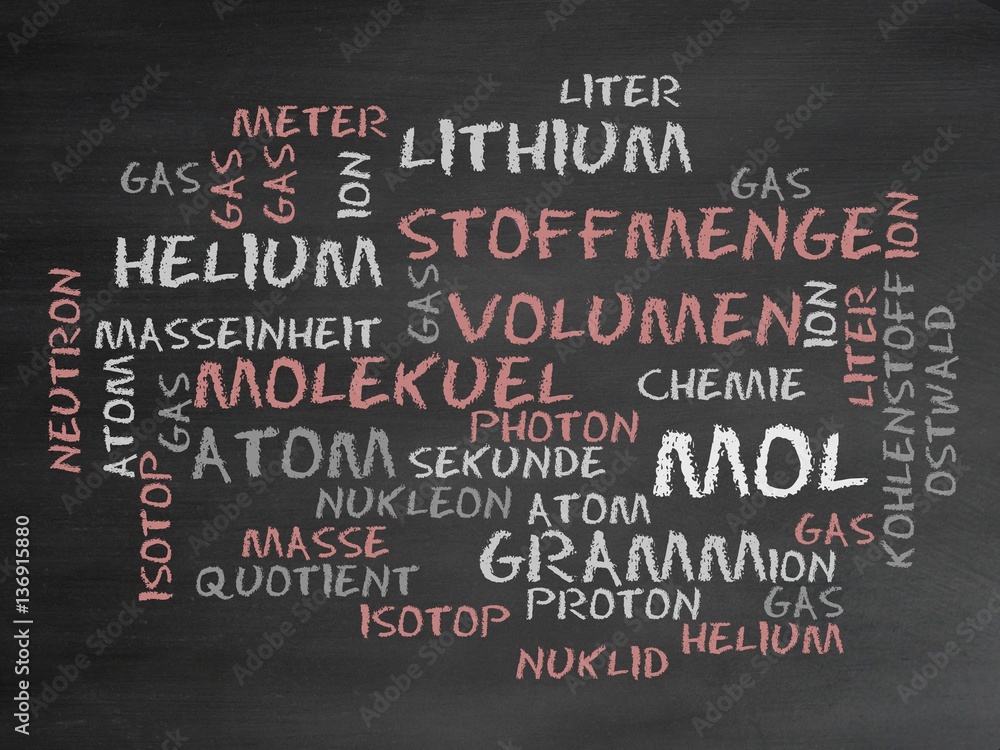 LITER
METER
LITHIUM
GAS
GAS
GAS
ION
GAS
STOFFMENGE
ION
HELIUM
GAS
VOLUMEN
ION
LITER
KOHLENSTOFF
OSTWALD
NEUTRON
MASSEINHEIT
ATOM
GAS
MOLEKUEL
CHEMIE
PHOTON
ATOM
SEKUNDE
MOL
ISOTOP
NUKLEON
ATOM
GAS
MASSE
GRAMM
ION
QUOTIENT
PROTON
GAS
ISOTOP
HELIUM
NUKLID
Adobe Stock | #136915880